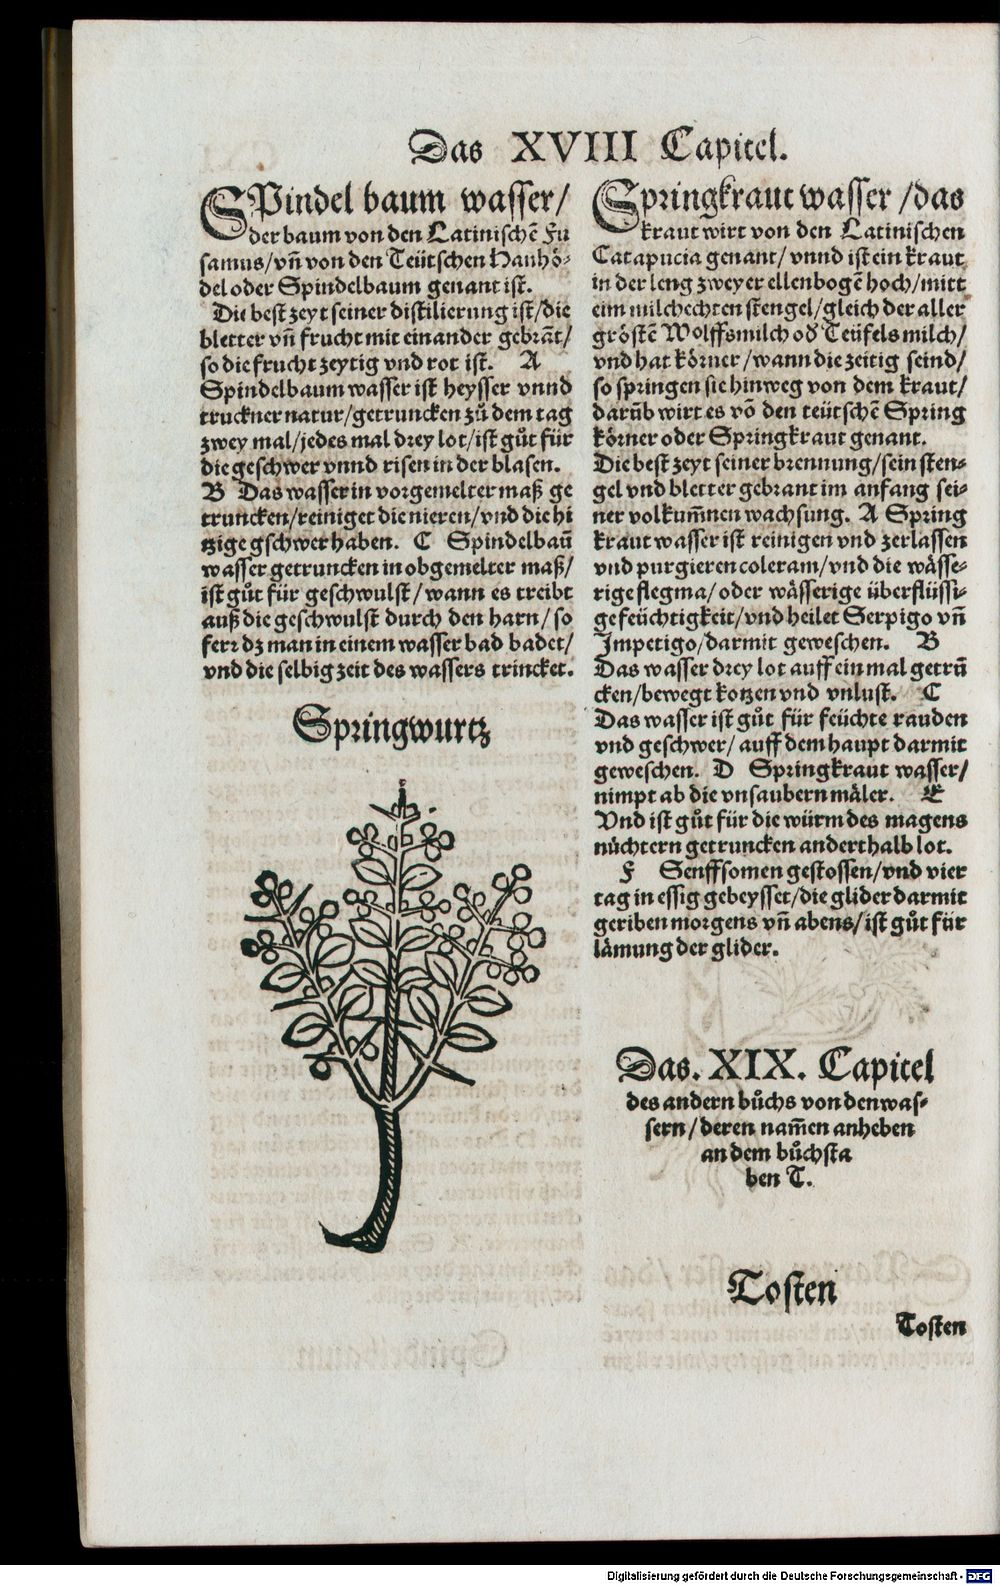 Das XVIII Capitel.
SPindel baum wasser/
der baum von den Latinischē Fu
samus/vn̄ von den Teütschen Hanhö-
del oder Spindelbaum genant ist.
Die best zeyt seiner distilierung ist/die
bletter vn̄ frucht mit einander gebrāt/
so die frucht zeytig vnd rot ist. A
Spindelbaum wasser ist heysser vnnd
truckner natur/getruncken zů dem tag
zwey mal/jedes mal drey lot/ist gůt für
die geschwer vnnd risen in der blasen.
B Das wasser in vorgemelter maß ge
truncken/reiniget die nieren/vnd die hi
tzige gschwer haben. C Spindelbaum̄
wasser getruncken in obgemelter maß/
ist gůt für geschwulst/wann es treibt
auß die geschwulst durch den harn/so
ferr dz man in einem wasser bad badet/
vnd die selbig zeit des wassers trincket.
Springwurtz
Springkraut wasser/das
kraut wirt von den Latinischen
Catapucia genant/vnnd ist ein kraut
in der leng zweyer ellenbogē hoch/mitt
eim milchechten stengel/gleich der aller
gröstē Wolffsmilch od̕ Teüfels milch/
vnd hat körner/wann die zeitig seind/
so springen sie hinweg von dem kraut/
darūb wirt es vō den teütschē Spring
körner oder Springkraut genant.
Die best zeyt seiner brennung/sein sten-
gel vnd bletter gebrant im anfang sei-
ner volkum̄nen wachsung. A Spring
kraut wasser ist reinigen vnd zerlassen
vnd purgieren coleram/vnd die wässe-
rige flegma/oder wässerige überflüssi-
ge feüchtigkeit/vnd heilet Serpigo vn̄
Impetigo/darmit geweschen. B
Das wasser drey lot auff ein mal getrū
cken/bewegt kotzen vnd vnlust. C
Das wasser ist gůt für feüchte rauden
vnd geschwer/auff dem haupt darmit
geweschen. D Springkraut wasser/
nimpt ab die vnsaubern mäler. E
Vnd ist gůt für die würm des magens
nüchtern getruncken anderthalb lot.
F Senffsomen gestossen/vnd vier
tag in essig gebeysset/die glider darmit
geriben morgens vn̄ abens/ist gůt für
lämung der glider.
Das. XIX. Capitel
des andern bůchs von den was-
sern/deren nam̄en anheben
an dem bůchsta
ben T.
Tosten
Tosten
Digitalisierung gefördert durch die Deutsche Forschungsgemeinschaft - DFG